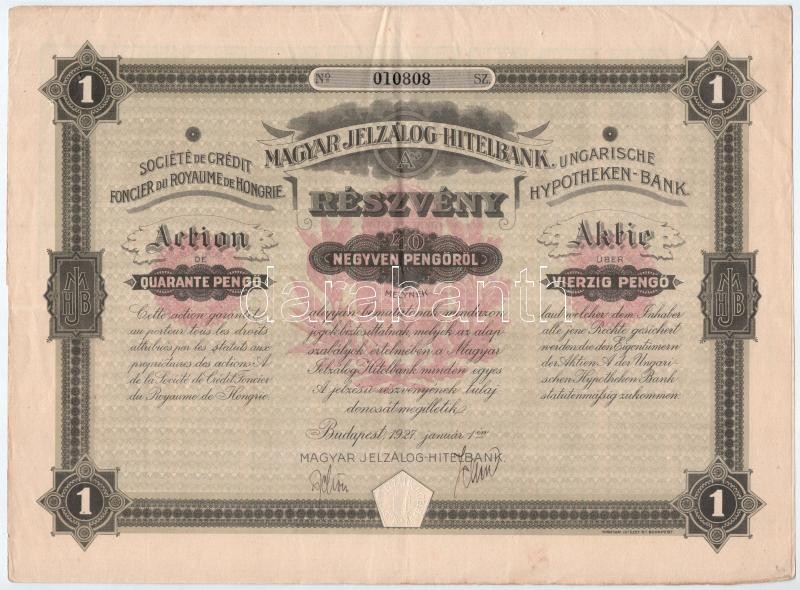 1
Nº 010808 SZ.
1
MAGYAR JELZÁLOG-HITELBANK.
A
RÉSZVÉNY
40
NEGYVEN PENGŐRŐL
MELYNEK
alapján bemutatónak mindazon
jogok biztosíttatnak, melyek az alap
szabályok értelmében a Magyar
Jelzálog Hitelbank minden egyes
A jelzésű részvényének tulaj
donosát megilletik.
Budapest, 1927. január 1-én
MAGYAR JELZÁLOG-HITELBANK.
SOCIÉTÉ DE CRÉDIT
FONCIER DU ROYAUME DE HONGRIE.
Action
DE
QUARANTE PENGŐ
Cette action garantit
au porteur tous les droits
attribués par les statuts aux
propriétaires des actions A
de la Société de Crédit Foncier
du Royaume de Hongrie.
UNGARISCHE
HYPOTHEKEN-BANK.
Aktie
ÜBER
VIERZIG PENGŐ
laut welcher dem Inhaber
alle jene Rechte gesichert
werden die den Eigentümern
der Aktien A der Ungari-
schen Hypotheken Bank
statutenmäßig zukommen.
MJHB
MJHB
darabanth.com
1
1